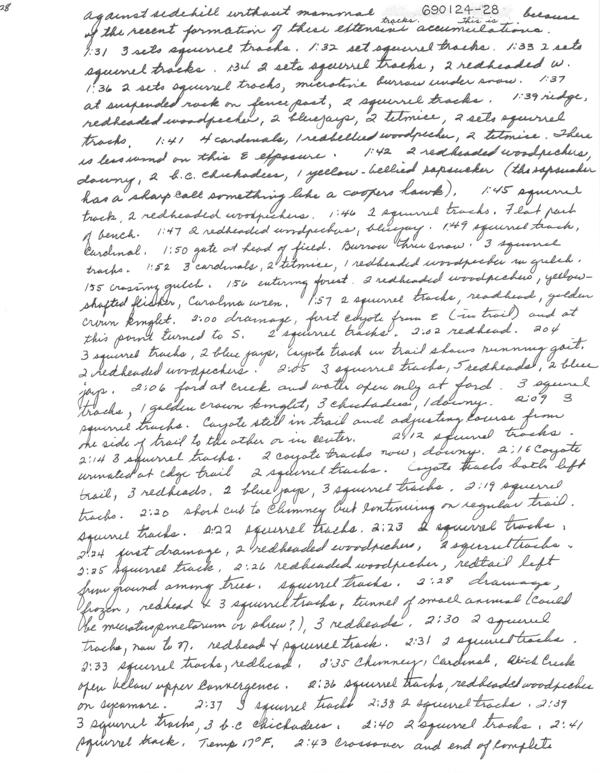 28
690124-28
against sidehill without mammal tracks. this is because
of the recent formation of these extensive accumulations.
1:31 3 sets squirrel tracks. 1:32 set squirrel tracks. 1:33 2 sets
squirrel tracks. 134 2 sets squirrel tracks, 2 redheaded w.
1:36 2 sets squirrel tracks, microtine burrow under snow. 1:37
at suspended rock on fence post, 2 squirrel tracks. 1:39 ridge,
redheaded woodpecker, 2 bluejays, 2 titmice, 2 sets squirrel
tracks. 1:41 4 cardinals, 1 redbellied woodpecker, 2 titmice. There
is less wind on this E exposure. 1:42 2 redheaded woodpeckers,
downy, 2 b.c. chickadees, 1 yellow-bellied sapsucker (the sapsucker
has a sharp call something like a coopers hawk). 1:45 squirrel
track, 2 redheaded woodpeckers. 1:46 2 squirrel tracks. Flat part
of bench. 1:47 2 redheaded woodpeckers, bluejay. 1:49 squirrel track,
Cardinal. 1:50 gate at head of field. Burrow thru snow. 3 squirrel
tracks. 1:52 3 cardinals, 2 titmice, 1 redheaded woodpecker in gulch.
155 crossing gulch. 156 entering forest. 2 redheaded woodpeckers, yellow-
shafted flicker, Carolina wren. 1:57 2 squirrel tracks, readhead, golden
crown kinglet. 2:00 drainage, first coyote from E (in trail) and at
this point turned to S. 2 squirrel tracks. 2:02 redhead. 204
3 squirrel tracks, 2 blue jays, Coyote track in trail shows running gait.
2 redheaded woodpeckers. 2:05 3 squirrel tracks, 5 redheads, 2 blue
jays. 2:06 ford at creek and water open only at ford. 3 squirrel
tracks, 1 golden crown kinglet, 3 chickadees, 1 downy. 2:09 3
squirrel tracks. Coyote still in trail and adjusting course from
one side of trail to the other or in center. 2:12 squirrel tracks.
2:14 3 squirrel tracks. 2 coyote tracks now, downy. 2:16 Coyote
urinated at edge trail 2 squirrel tracks. Coyote tracks both left
trail, 3 redheads. 2 blue jays, 3 squirrel tracks. 2:19 squirrel
tracks. 2:20 short cut to Chimney but continuing on regular trail.
squirrel tracks. 2:22 squirrel tracks. 2:23 2 squirrel tracks,
2:24 first drainage, 2 redheaded woodpeckers, 2 squirrel tracks.
2:25 squirrel track, 2:26 redheaded woodpecker, redtail left
from ground among trees. squirrel tracks. 2:28 drainage,
frozen, redhead & 3 squirrel tracks, tunnel of small animal (could
be microtus pinetorum or shrew?), 3 redheads. 2:30 2 squirrel
tracks, now to N. redhead & squirrel track. 2:31 2 squirrel tracks.
2:33 squirrel tracks, redhead. 2:35 Chimney, Cardinal. Creek
open below upper convergence. 2:36 squirrel tracks, redheaded woodpecker
on sycamore. 2:37 3 squirrel tracks 2:38 2 squirrel tracks. 2:39
3 squirrel tracks, 3 b.c chickadees. 2:40 2 squirrel tracks. 2:41
squirrel track. Temp 17°F. 2:43 Crossover and end of complete